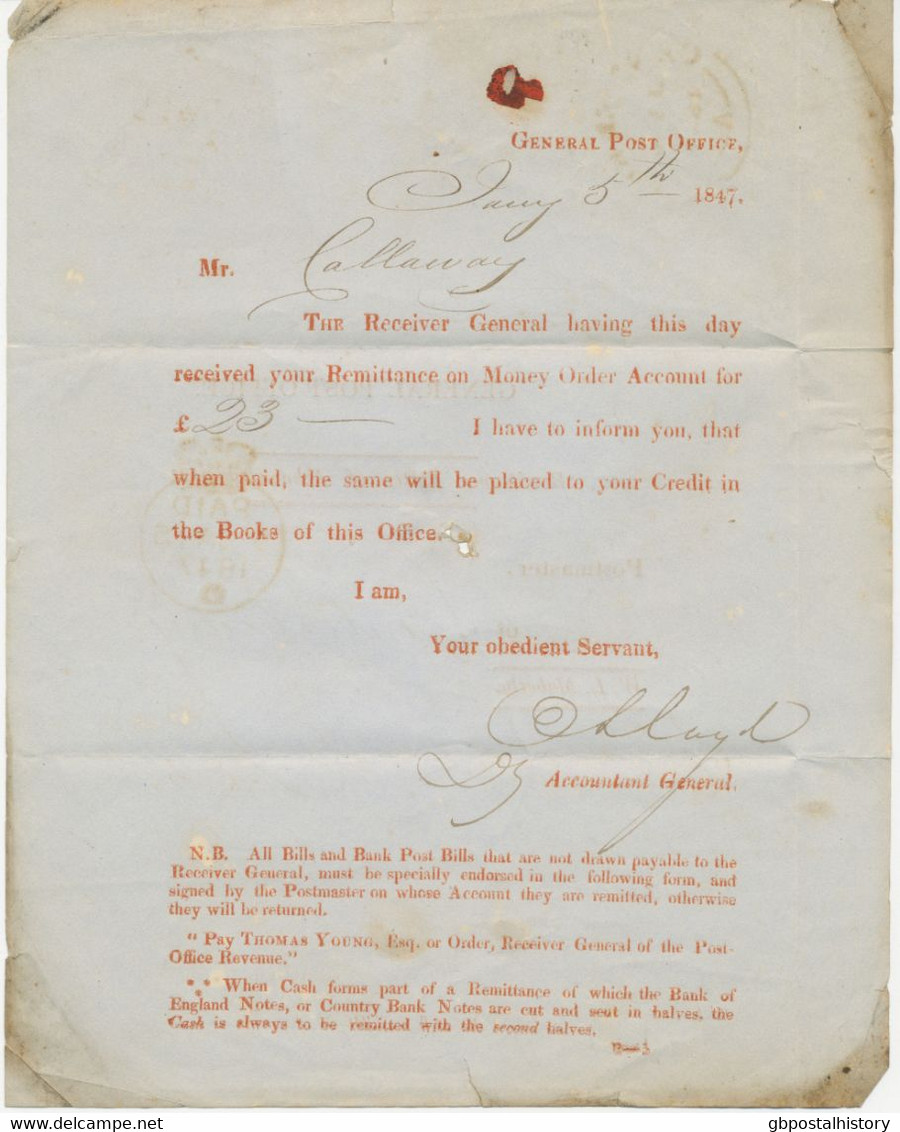 GENERAL POST OFFICE,
Jany 5th 1847.
Mr. Callaway
THE Receiver General having this day
received your Remittance on Money Order Account for
£ 23 — I have to inform you, that
when paid, the same will be placed to your Credit in
the Books of this Office.
I am,
Your obedient Servant,
Accountant General.
N.B. All Bills and Bank Post Bills that are not drawn payable to the
Receiver General, must be specially endorsed in the following form, and
signed by the Postmaster on whose Account they are remitted, otherwise
they will be returned.
"Pay THOMAS YOUNG, Esq. or Order, Receiver General of the Post-
Office Revenue."
*** When Cash forms part of a Remittance of which the Bank of
England Notes, or Country Bank Notes are cut and sent in halves, the
Cash is always to be remitted with the second halves.
B—3
PAID
1847
GENERAL POST OFFICE
Postmaster.
delcampe.net
gbpostalhistory